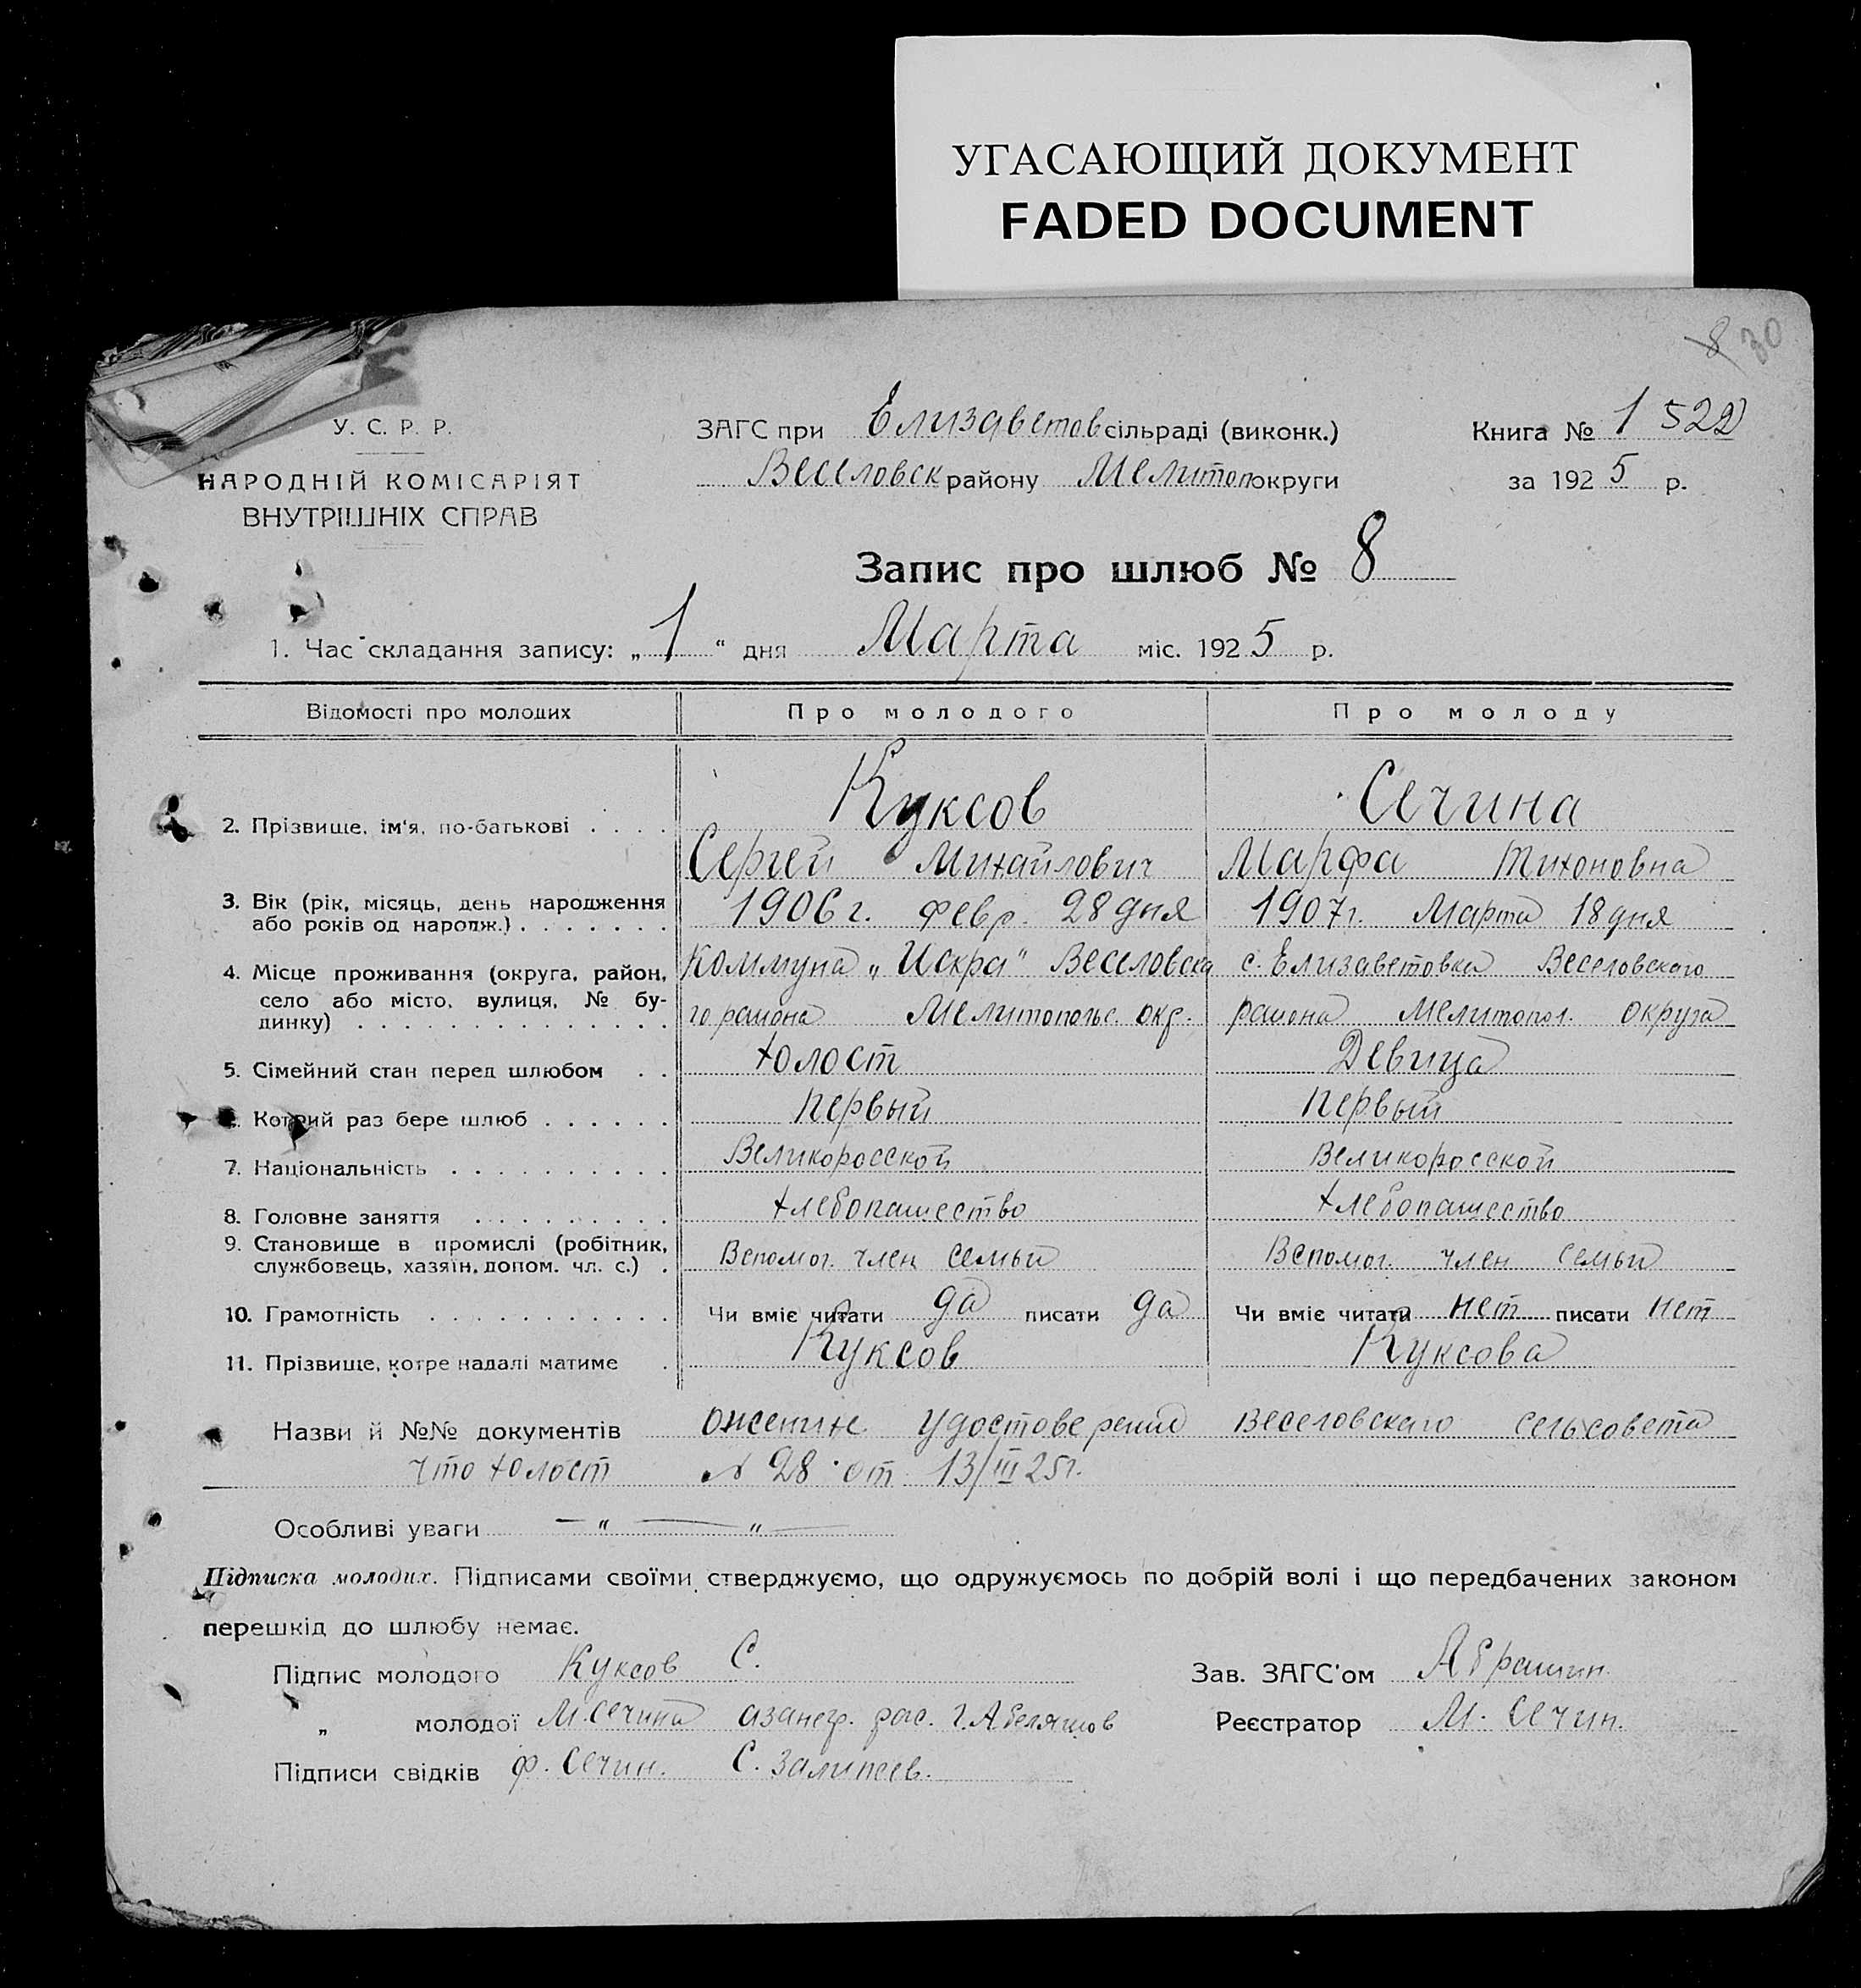 УГАСАЮЩИЙ ДОКУМЕНТ
FADED DOCUMENT
8 30
У. С. Р. Р.
НАРОДНІЙ КОМІСАРІЯТ
ВНУТРІШНІХ СПРАВ
ЗАГС при Елизаветов сільраді (виконк.)
Веселовск району Мелитоп округи
Книга № 1 522
за 1925 р.
Запис про шлюб № 8
1. Час складання запису: „ 1 “ дня Марта міс. 1925 р.
Відомості про молодих
Про молодого
Про молоду
2. Прізвище, ім'я, по-батькові . . . .
Куксов
Сергей Михайлович
Сечина
Марфа Тихоновна
3. Вік (рік, місяць, день народження
або років од народж.) . . . . . . .
1906 г. февр. 28 дня
1907 г. Марта 18 дня
4. Місце проживання (округа, район,
село або місто, вулиця, № бу-
динку) . . . . . . . . . . . . . .
Коммуна „Искра“ Веселовска
го района Мелитопольс. окр.
с. Елизаветовка Веселовскаго
района Мелитопол. округа
5. Сімейний стан перед шлюбом . .
холост
Девица
Котрий раз бере шлюб . . . . . .
первый
первый
7. Національність . . . . . . . . . .
Великоросской
Великоросской
8. Головне заняття . . . . . . . . .
хлебопашество
хлебопашество
9. Становище в промислі (робітник,
службовець, хазяїн, допом. чл. с.) .
Вспомог. член семьи
Вспомог. член семьи
10. Грамотність . . . . . . . . . . .
Чи вміє читати да писати да
Чи вміє читати нет писати нет
11. Прізвище, котре надалі матиме .
Куксов
Куксова
Назви й №№ документів Удостоверение Веселовскаго сельсовета
что холост № 28 от 13/III 25 г.
Особливі уваги — „ — „ —
Підписка молодих. Підписами своїми стверджуємо, що одружуємось по добрій волі і що передбачених законом
перешкід до шлюбу немає.
Підпис молодого Куксов С.
„ молодої М. Сечина
Підписи свідків Ф. Сечин. С.
Зав. ЗАГС'ом Абрашин.
Реєстратор М. Сечин.